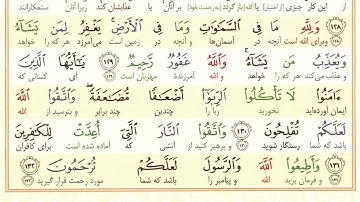 از این کار چیزی از اختیار یا الله باز گردد (به رحمت خود) بر آنان یا عذابشان کند زیرا آنان ستمکارانند
۱۲۸ وَلِلَّهِ مَا فِى ٱلسَّمَـٰوَٰتِ وَمَا فِى ٱلْأَرْضِ يَغْفِرُ لِمَن يَشَآءُ
وبرای الله است آنچه در آسمان‌ها و آنچه در زمین است می‌آمرزد هر که را خواهد
وَيُعَذِّبُ مَن يَشَآءُ وَٱللَّهُ غَفُورٌ رَّحِيمٌ ۱۲۹ يَـٰٓأَيُّهَا ٱلَّذِينَ
و عذاب می‌کند هر که را خواهد و الله آمرزنده مهربان است ای کسانی که
ءَامَنُوا۟ لَا تَأْكُلُوا۟ ٱلرِّبَوٰٓا۟ أَضْعَـٰفًا مُّضَـٰعَفَةً وَٱتَّقُوا۟ ٱللَّهَ
ایمان آورده‌اید نخورید ربا را چندین چند برابر و بترسید از الله
لَعَلَّكُمْ تُفْلِحُونَ ۱۳۰ وَٱتَّقُوا۟ ٱلنَّارَ ٱلَّتِىٓ أُعِدَّتْ لِلْكَـٰفِرِينَ
باشد که شما رستگار شوید و بپرهیزید از آتشی که آماده شده است برای کافران
۱۳۱ وَأَطِيعُوا۟ ٱللَّهَ وَٱلرَّسُولَ لَعَلَّكُمْ تُرْحَمُونَ ۱۳۲
و فرمان برید الله و پیامبر را باشد که شما مورد رحمت قرار گیرید